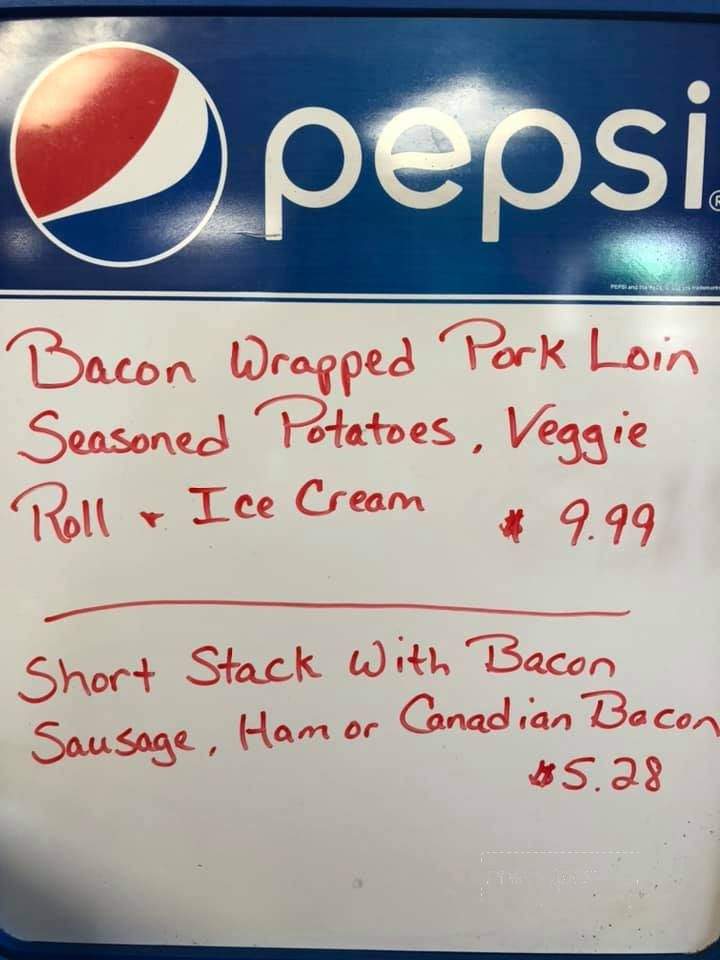 pepsi
Bacon Wrapped Pork Loin
Seasoned Potatoes, Veggie
Roll + Ice Cream $ 9.99
Short Stack With Bacon
Sausage, Ham or Canadian Bacon
$5.28